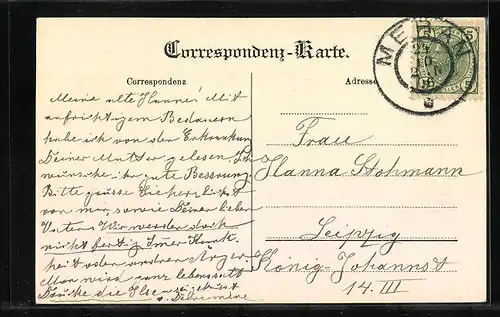 Correspondenz-Karte.
Correspondenz
Adresse
MERAN
5
Meine alte Hanne! Mit
aufrichtigem Bedauern
habe ich von der Erkrankung
Deiner Mutter gelesen. Ich
wünsche ihr gute Besserung.
Bitte grüsse Sie herzlichst
von mir, sowie Deinen lieben
Vater. Wir werden doch
nicht fertig
heit oder andren Ärger.
Man wird ganz lebenssatt
Drücke die Ilse
Frau
Hanna Stohmann
Leipzig
König-Johannst
14. III